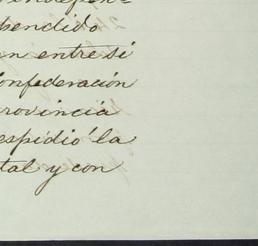 indepen-
pendido
an entre si
onfederación
rovincia
espidió la
tal y con